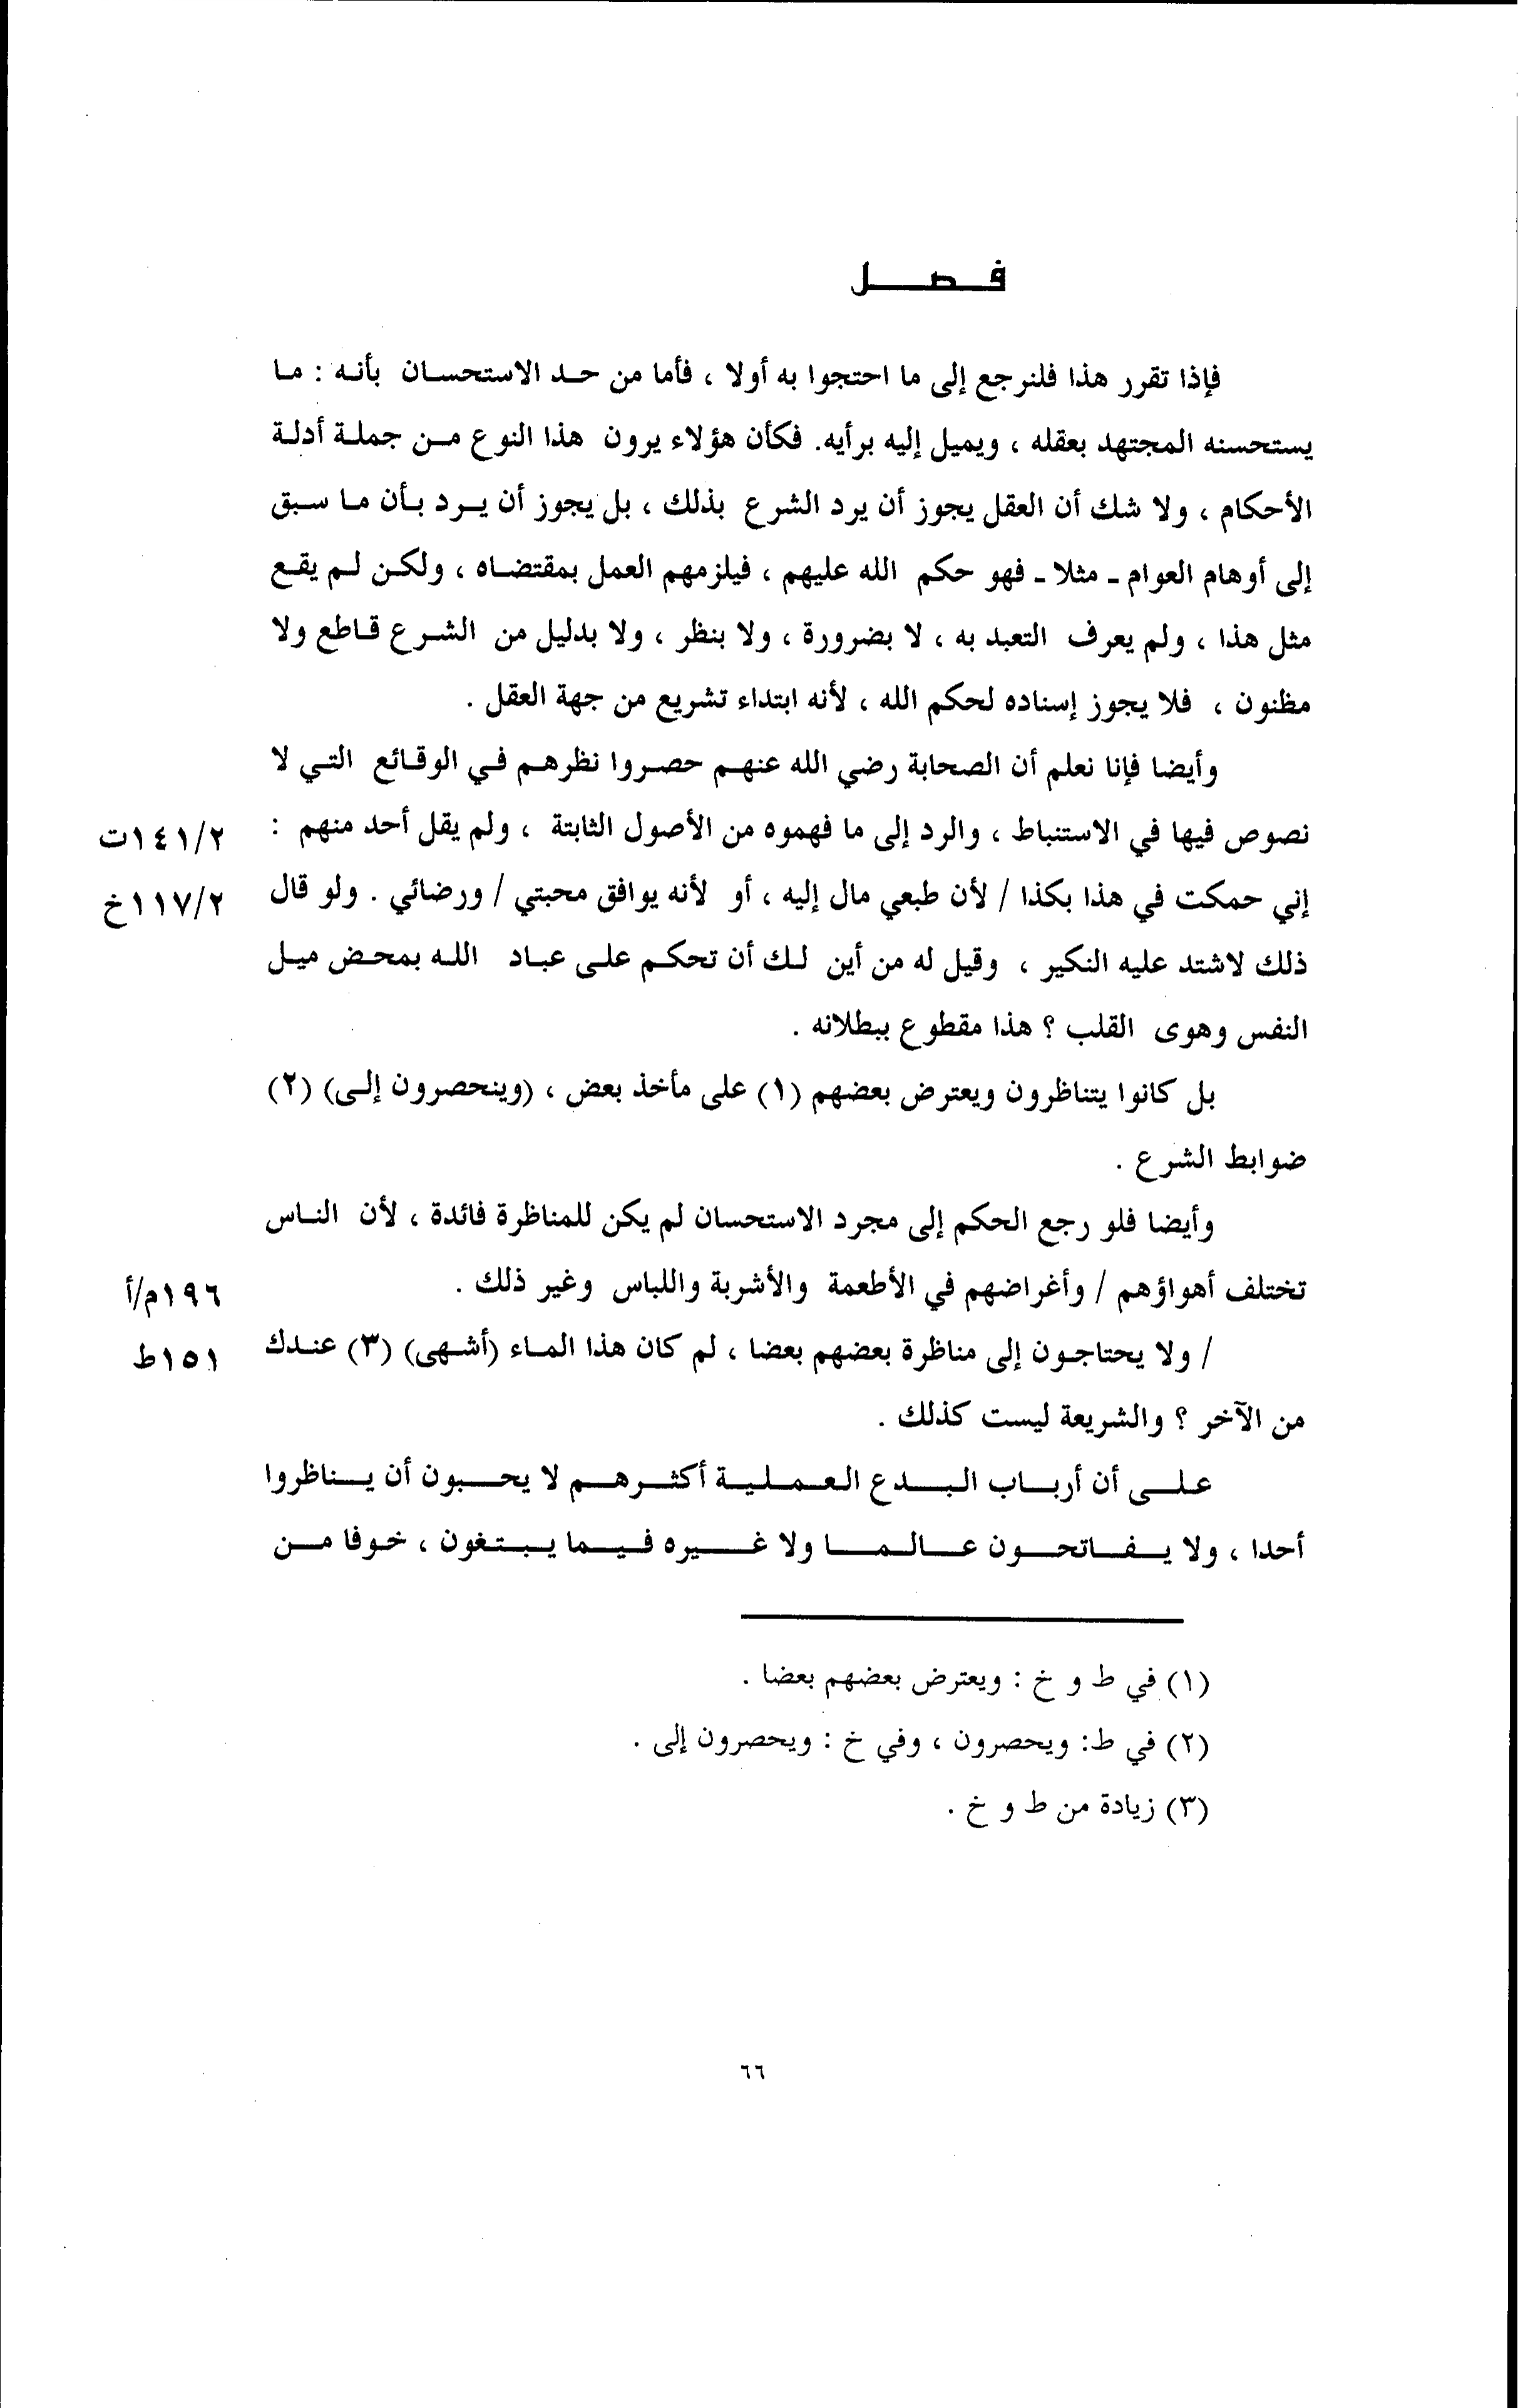 فصل
فإذا تقرر هذا فلنرجع إلى ما احتجوا به أولا ، فأما من حد الاستحسان بأنه : ما
يستحسنه المجتهد بعقله ، ويميل إليه برأيه. فكأن هؤلاء يرون هذا النوع من جملة أدلة
الأحكام ، ولا شك أن العقل يجوز أن يرد الشرع بذلك ، بل يجوز أن يرد بأن ما سبق
إلى أوهام العوام ـ مثلا ـ فهو حكم الله عليهم ، فيلزمهم العمل بمقتضاه ، ولكن لم يقع
مثل هذا ، ولم يعرف التعبد به ، لا بضرورة ، ولا بنظر ، ولا بدليل من الشرع قاطع ولا
مظنون ، فلا يجوز إسناده لحكم الله ، لأنه ابتداء تشريع من جهة العقل .
وأيضا فإنا نعلم أن الصحابة رضي الله عنهم حصروا نظرهم في الوقائع التي لا
نصوص فيها في الاستنباط ، والرد إلى ما فهموه من الأصول الثابتة ، ولم يقل أحد منهم : ١٤١/٢ت
إني حمكت في هذا بكذا / لأن طبعي مال إليه ، أو لأنه يوافق محبتي / ورضائي . ولو قال ١١٧/٢خ
ذلك لاشتد عليه النكير ، وقيل له من أين لك أن تحكم على عباد الله بمحض ميل
النفس وهوى القلب ؟ هذا مقطوع ببطلانه .
بل كانوا يتناظرون ويعترض بعضهم (١) على مأخذ بعض ، (وينحصرون إلى) (٢)
ضوابط الشرع .
وأيضا فلو رجع الحكم إلى مجرد الاستحسان لم يكن للمناظرة فائدة ، لأن الناس
تختلف أهواؤهم / وأغراضهم في الأطعمة والأشربة واللباس وغير ذلك . ١٩٦م/أ
/ ولا يحتاجون إلى مناظرة بعضهم بعضا ، لم كان هذا الماء (أشهى) (٣) عندك ١٥١ط
من الآخر ؟ والشريعة ليست كذلك .
على أن أرباب البدع العملية أكثرهم لا يحبون أن يناظروا
أحدا ، ولا يفاتحون عالما ولا غيره فيما يبتغون ، خوفا من
(١) في ط و خ : ويعترض بعضهم بعضا .
(٢) في ط: ويحصرون ، وفي خ : ويحصرون إلى .
(٣) زيادة من ط و خ .
٦٦